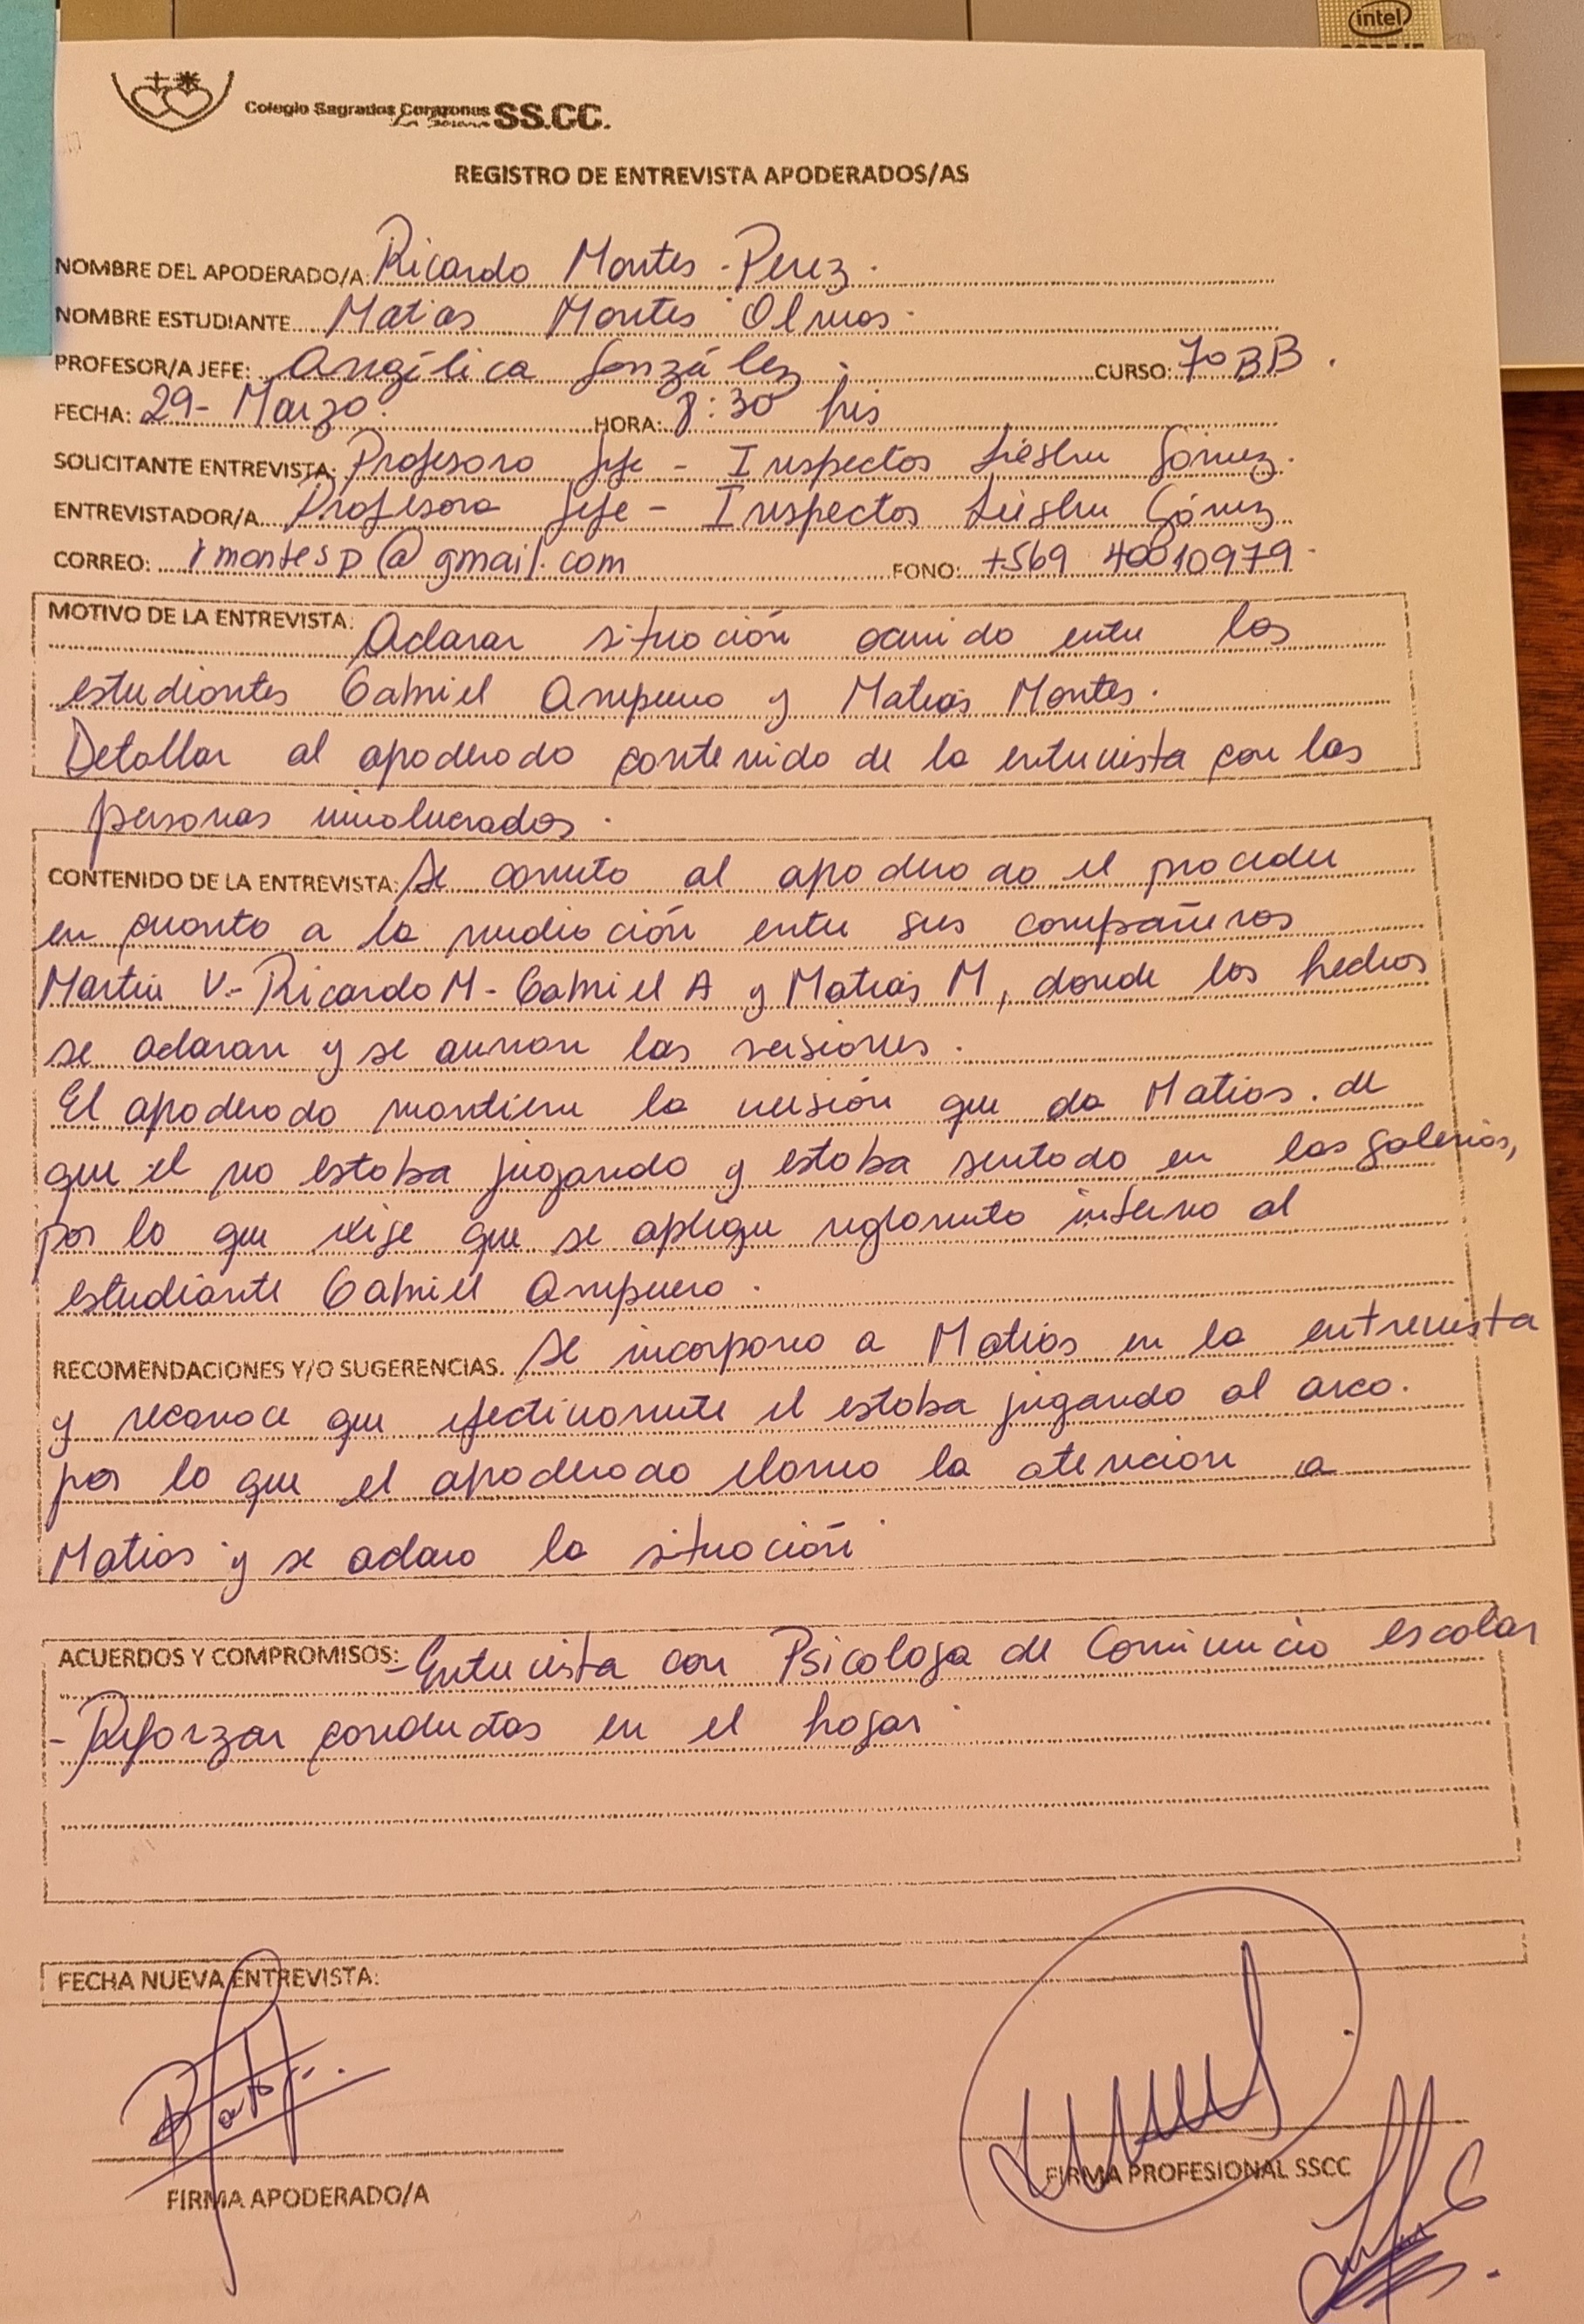 intel
CORE i5
Colegio Sagrados Corazones SS.CC.
La Serena
REGISTRO DE ENTREVISTA APODERADOS/AS
NOMBRE DEL APODERADO/A: Ricardo Montes Perez.
NOMBRE ESTUDIANTE Matias Montes Olmos.
PROFESOR/A JEFE: Angélica González. CURSO: 7º BB.
FECHA: 29- Marzo. HORA: 8:30 hrs
SOLICITANTE ENTREVISTA: Profesora Jefe - Inspectos Gómez.
ENTREVISTADOR/A Profesora Jefe - Inspectos Gómez
CORREO: rmontesp@gmail.com FONO: +569 40010979
MOTIVO DE LA ENTREVISTA: Aclarar situación ocurrida entre los
estudiantes Gabriel Ampuero y Matías Montes.
Detallar al apoderado contenido de la entrevista con las
personas involucrados.
CONTENIDO DE LA ENTREVISTA: Se comenta al apoderado el proceder
en cuanto a la mediación entre sus compañeros
Martín V.- Ricardo M - Gabriel A y Matías M, donde los hechos
se aclaran y se aunan las versiones.
El apoderado mantiene la versión que da Matías. de
que el no estaba jugando y estaba sentado en las galerías,
por lo que exige que se aplique reglamento interno al
estudiante Gabriel Ampuero.
RECOMENDACIONES Y/O SUGERENCIAS. Se incorpora a Matías en la entrevista
y reconoce que efectivamente el estaba jugando al arco.
por lo que el apoderado llama la atención a
Matias y se aclara la situación
ACUERDOS Y COMPROMISOS: - Entrevista con Psicologa de Convivencia escolar
- Reforzar conductas en el hogar
FECHA NUEVA ENTREVISTA:
FIRMA APODERADO/A
FIRMA PROFESIONAL SSCC